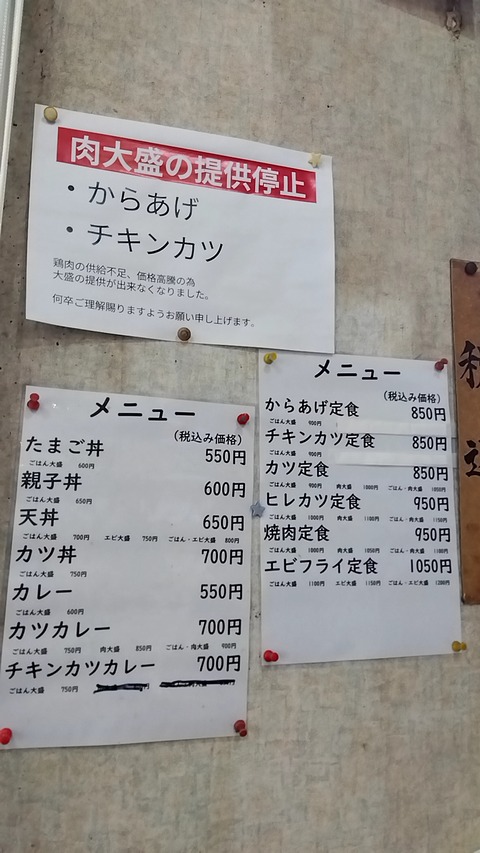 肉大盛の提供停止
・からあげ
・チキンカツ
鶏肉の供給不足、価格高騰の為
大盛の提供が出来なくなりました。
何卒ご理解賜りますようお願い申し上げます。
メニュー
(税込み価格)
たまご丼 550円
ごはん大盛 600円
親子丼 600円
ごはん大盛 650円
天丼 650円
ごはん大盛 700円 エビ大盛 750円 ごはん・エビ大盛 800円
カツ丼 700円
ごはん大盛 750円
カレー 550円
ごはん大盛 600円
カツカレー 700円
ごはん大盛 750円 肉大盛 850円 ごはん・肉大盛 900円
チキンカツカレー 700円
ごはん大盛 750円
メニュー
(税込み価格)
からあげ定食 850円
ごはん大盛 900円
チキンカツ定食 850円
ごはん大盛 900円
カツ定食 850円
ごはん大盛 900円 肉大盛 1000円 ごはん・肉大盛 1050円
ヒレカツ定食 950円
ごはん大盛 1000円 肉大盛 1100円 ごはん・肉大盛 1150円
焼肉定食 950円
ごはん大盛 1000円 肉大盛 1050円 ごはん・肉大盛 1100円
エビフライ定食 1050円
ごはん大盛 1100円 エビ大盛 1150円 ごはん・エビ大盛 1200円